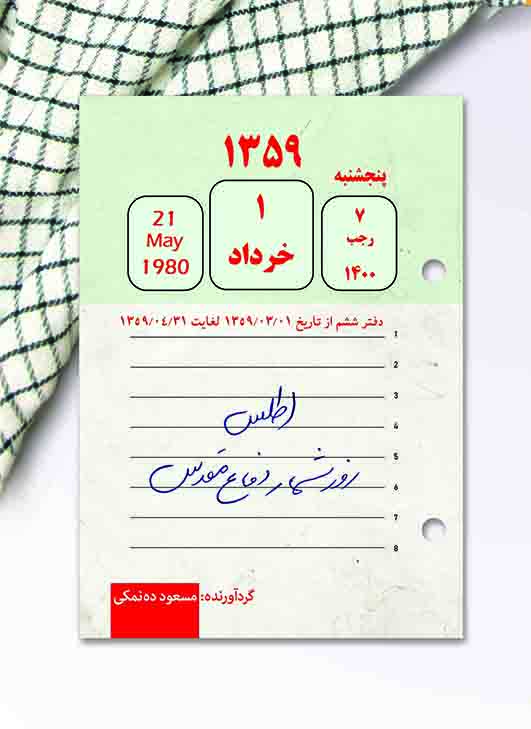 ۱۳۵۹
پنجشنبه
۷
رجب
۱۴۰۰
۱
خرداد
21
May
1980
دفتر ششم از تاریخ ۱۳۵۹/۰۳/۰۱ لغایت ۱۳۵۹/۰۴/۳۱
1
2
3
4
5
6
7
8
اطلس
روزشمار دفاع مقدس
گردآورنده: مسعود ده‌نمکی